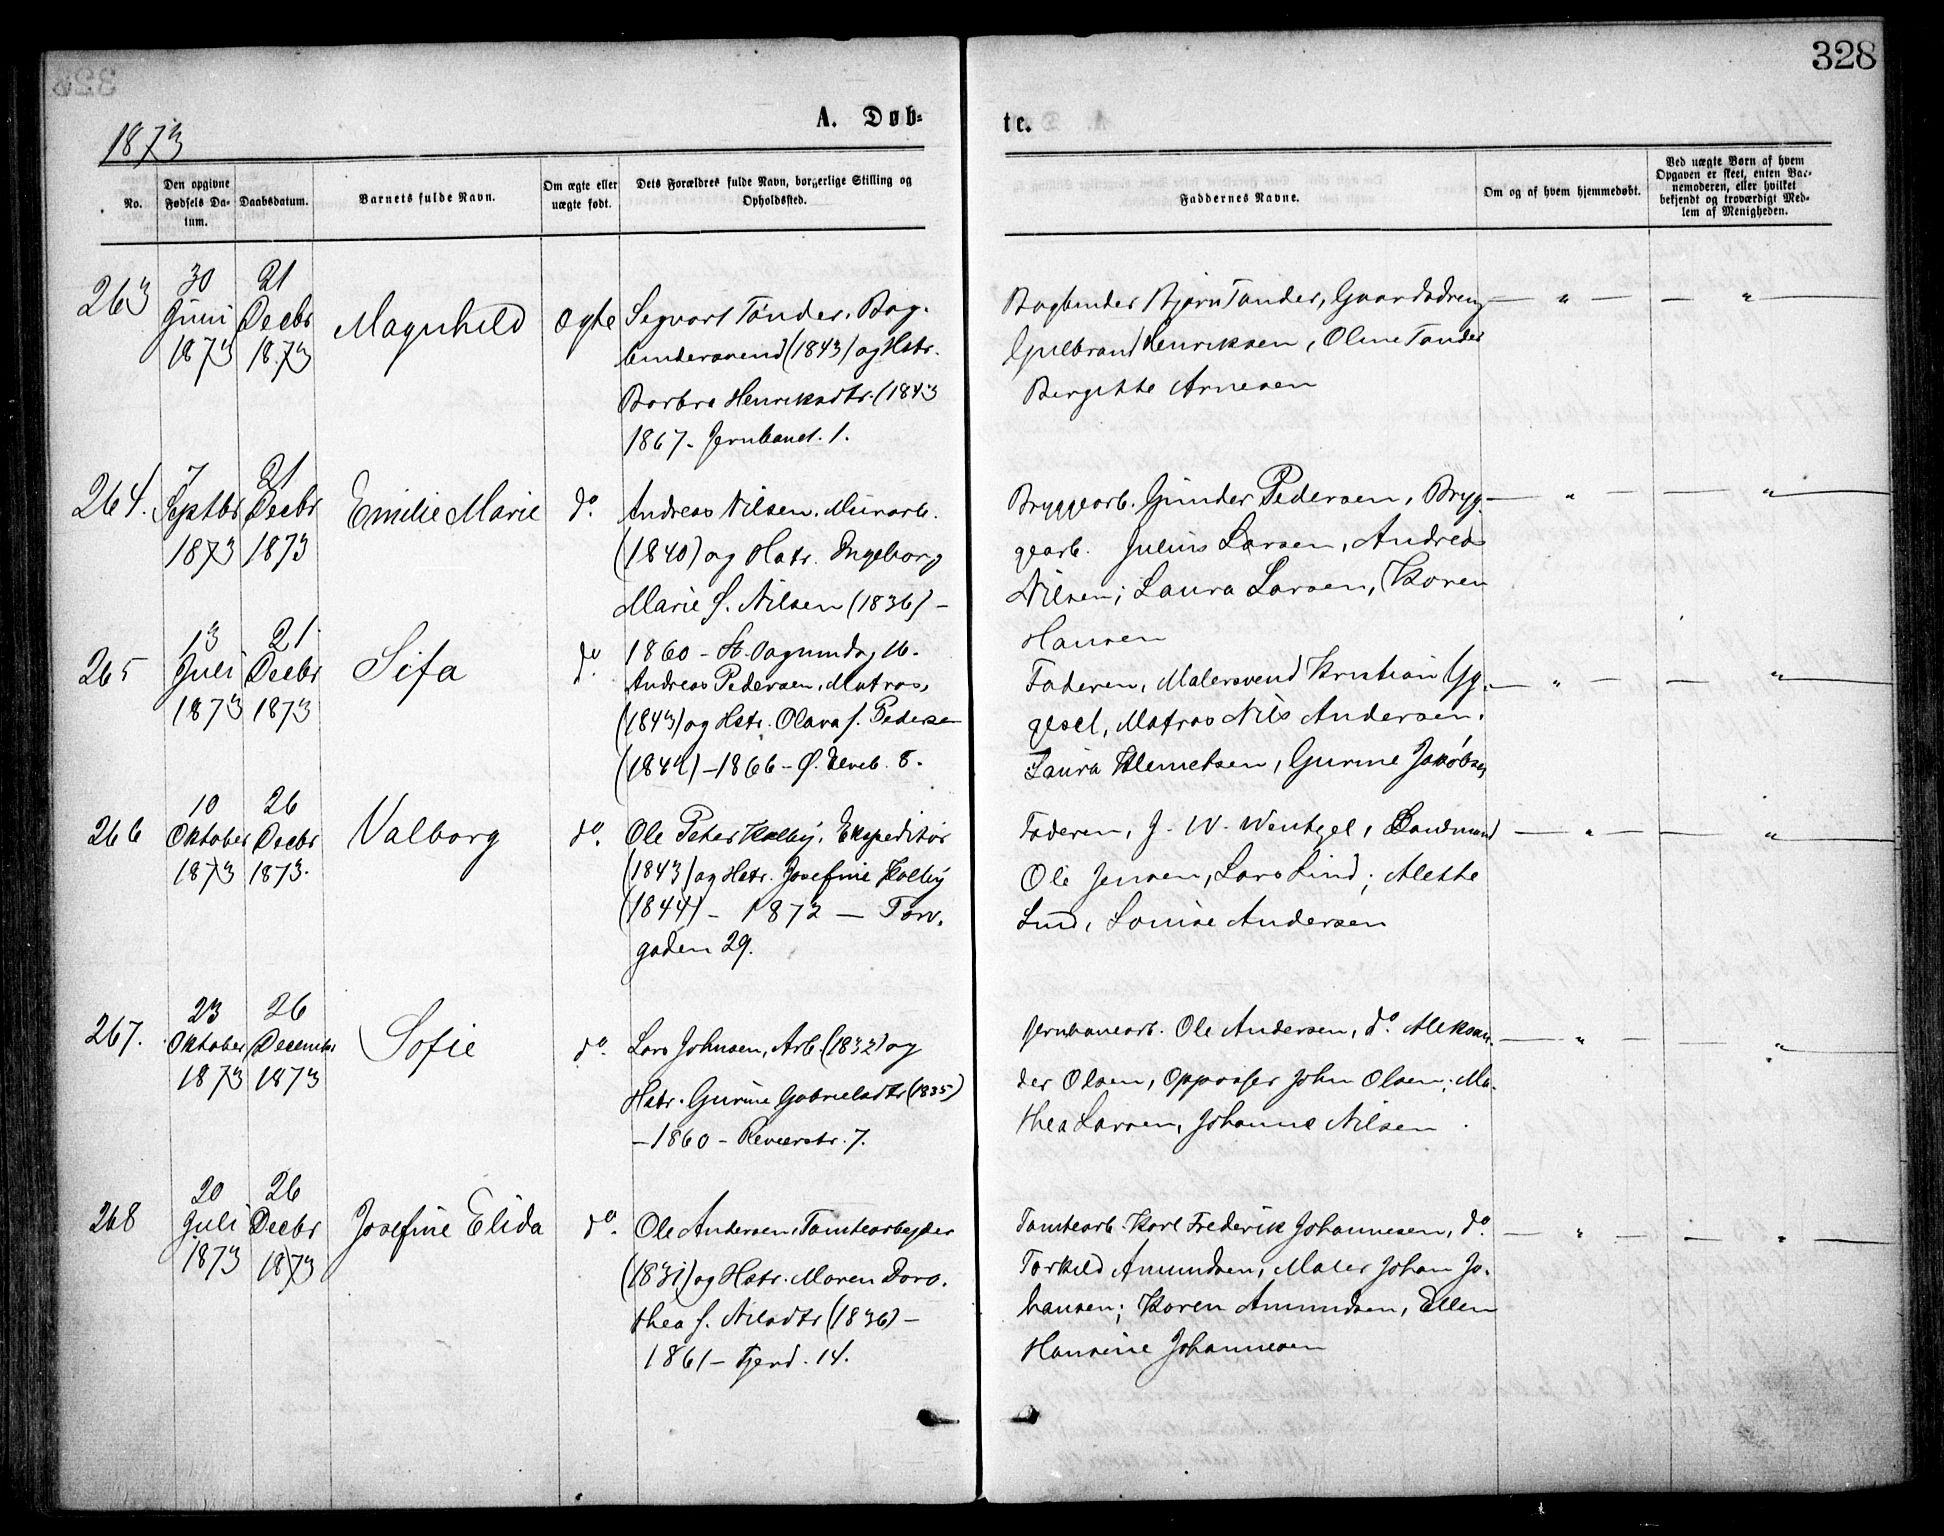 328
1873
A. Døb-
te.
No.
Den opgivne
Fødsels Da-
tum.
Daabsdatum.
Barnets fulde Navn.
Om ægte eller
uægte født.
Dets Forældres fulde Navn, borgerlige Stilling og
Opholdssted.
Faddernes Navne.
Om og af hvem hjemmedøbt.
Ved uægte Børn af hvem
Opgaven er skeet, enten Bar-
nemoderen, eller hvilket
bekjendt og troværdigt Med-
lem af Menigheden.
263
30
Juni
1873
21
Decbr
1873
Magnhild
ægte
Segvart Tander, Bog-
bindersvend (1843) og Hstr.
Barbra Henriksdtr. (1843
1867 - Jernbanet. 1.
Bogbinder Bjørn Tander, Gaardsdreng
Gulbrand Henriksen, Oline Tander
Bergitte Arnesen
— " — — " —
264.
7
Septbr
1873
21
Decbr
1873
Emilie Marie
do.
Andreas Nilsen, Murarb.
(1840) og Hstr. Ingeborg
Marie f. Nilsen (1836) -
1860 - St. Dagmundsg 16.
Bryggearb. Gunder Pedersen, Bryg-
gearb. Julius Larsen, Andreas
Nilsen; Laura Larsen, Karen
Hansen
— " — — " —
265
13
Juli
1873
21
Decbr
1873
Sifa
do.
Andreas Pedersen, Matros,
(1843) og Hstr. Olava f. Pedersen
(1844) - 1866 - Ø. Elveb. 8.
Faderen, Malersvend Kristian Yg-
gesel, Matros Nils Andersen.
Laura Klemetsen, Gurine Jakobsen
— " — — " —
266
10
Oktober
1873
26
Decbr
1873.
Valborg
do.
Ole Peter Kolby, Ekspeditør
(1843) og Hstr. Josefine Kolby
(1844) - 1872 - Torv-
gaden 29.
Faderen, J. W. Wentzel, Landmand
Ole Jensen, Lars Lind; Alette
Lind, Louise Andersen
— " — — " —
267.
23
Oktober
1873
26
December
1873
Sofie
do.
Lars Johnsen, Arb. (1832) og
Hstr. Gurine Gabrielsdtr (1835)
- 1860 - Reverstr. 7.
Jernbanearb. Ole Andersen, do. Aleksan-
der Olsen, Oppasser John Olsen; Ma-
thea Larsen, Johanne Nilsen
— " — — " —
268
20
Juli
1873
26
Decbr
1873
Josefine Elida
do.
Ole Andersen, Tomtearbejder
(1831) og Hstr. Maren Doro-
thea f. Nilsdtr (1836) -
1861 - Fjerd. 14.
Tomtearb. Karl Frederik Johannesen, do.
Torkild Amundsen, Maler Johan Jo-
hansen; Karen Amundsen, Ellen
Hansine Johannesen
— " — — " —